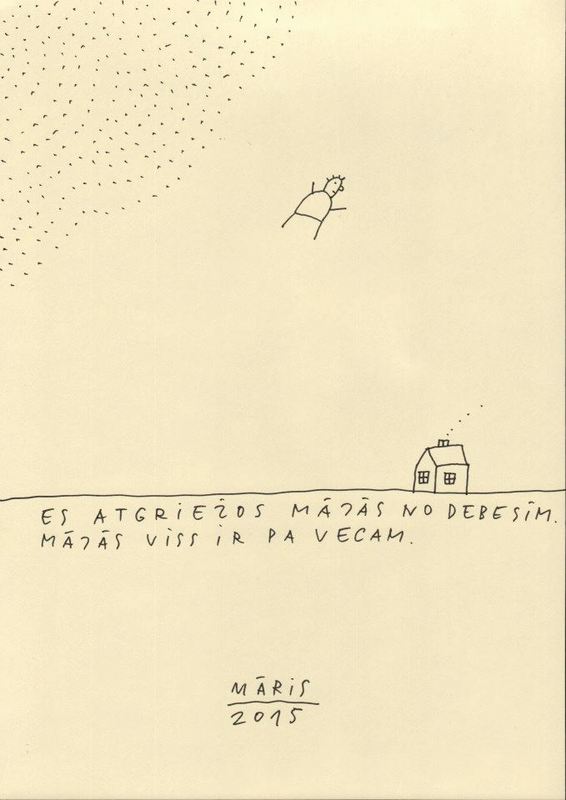 ES ATGRIEŽOS MĀJĀS NO DEBESĪM.
MĀJĀS VISS IR PA VECAM.
MĀRIS
2015